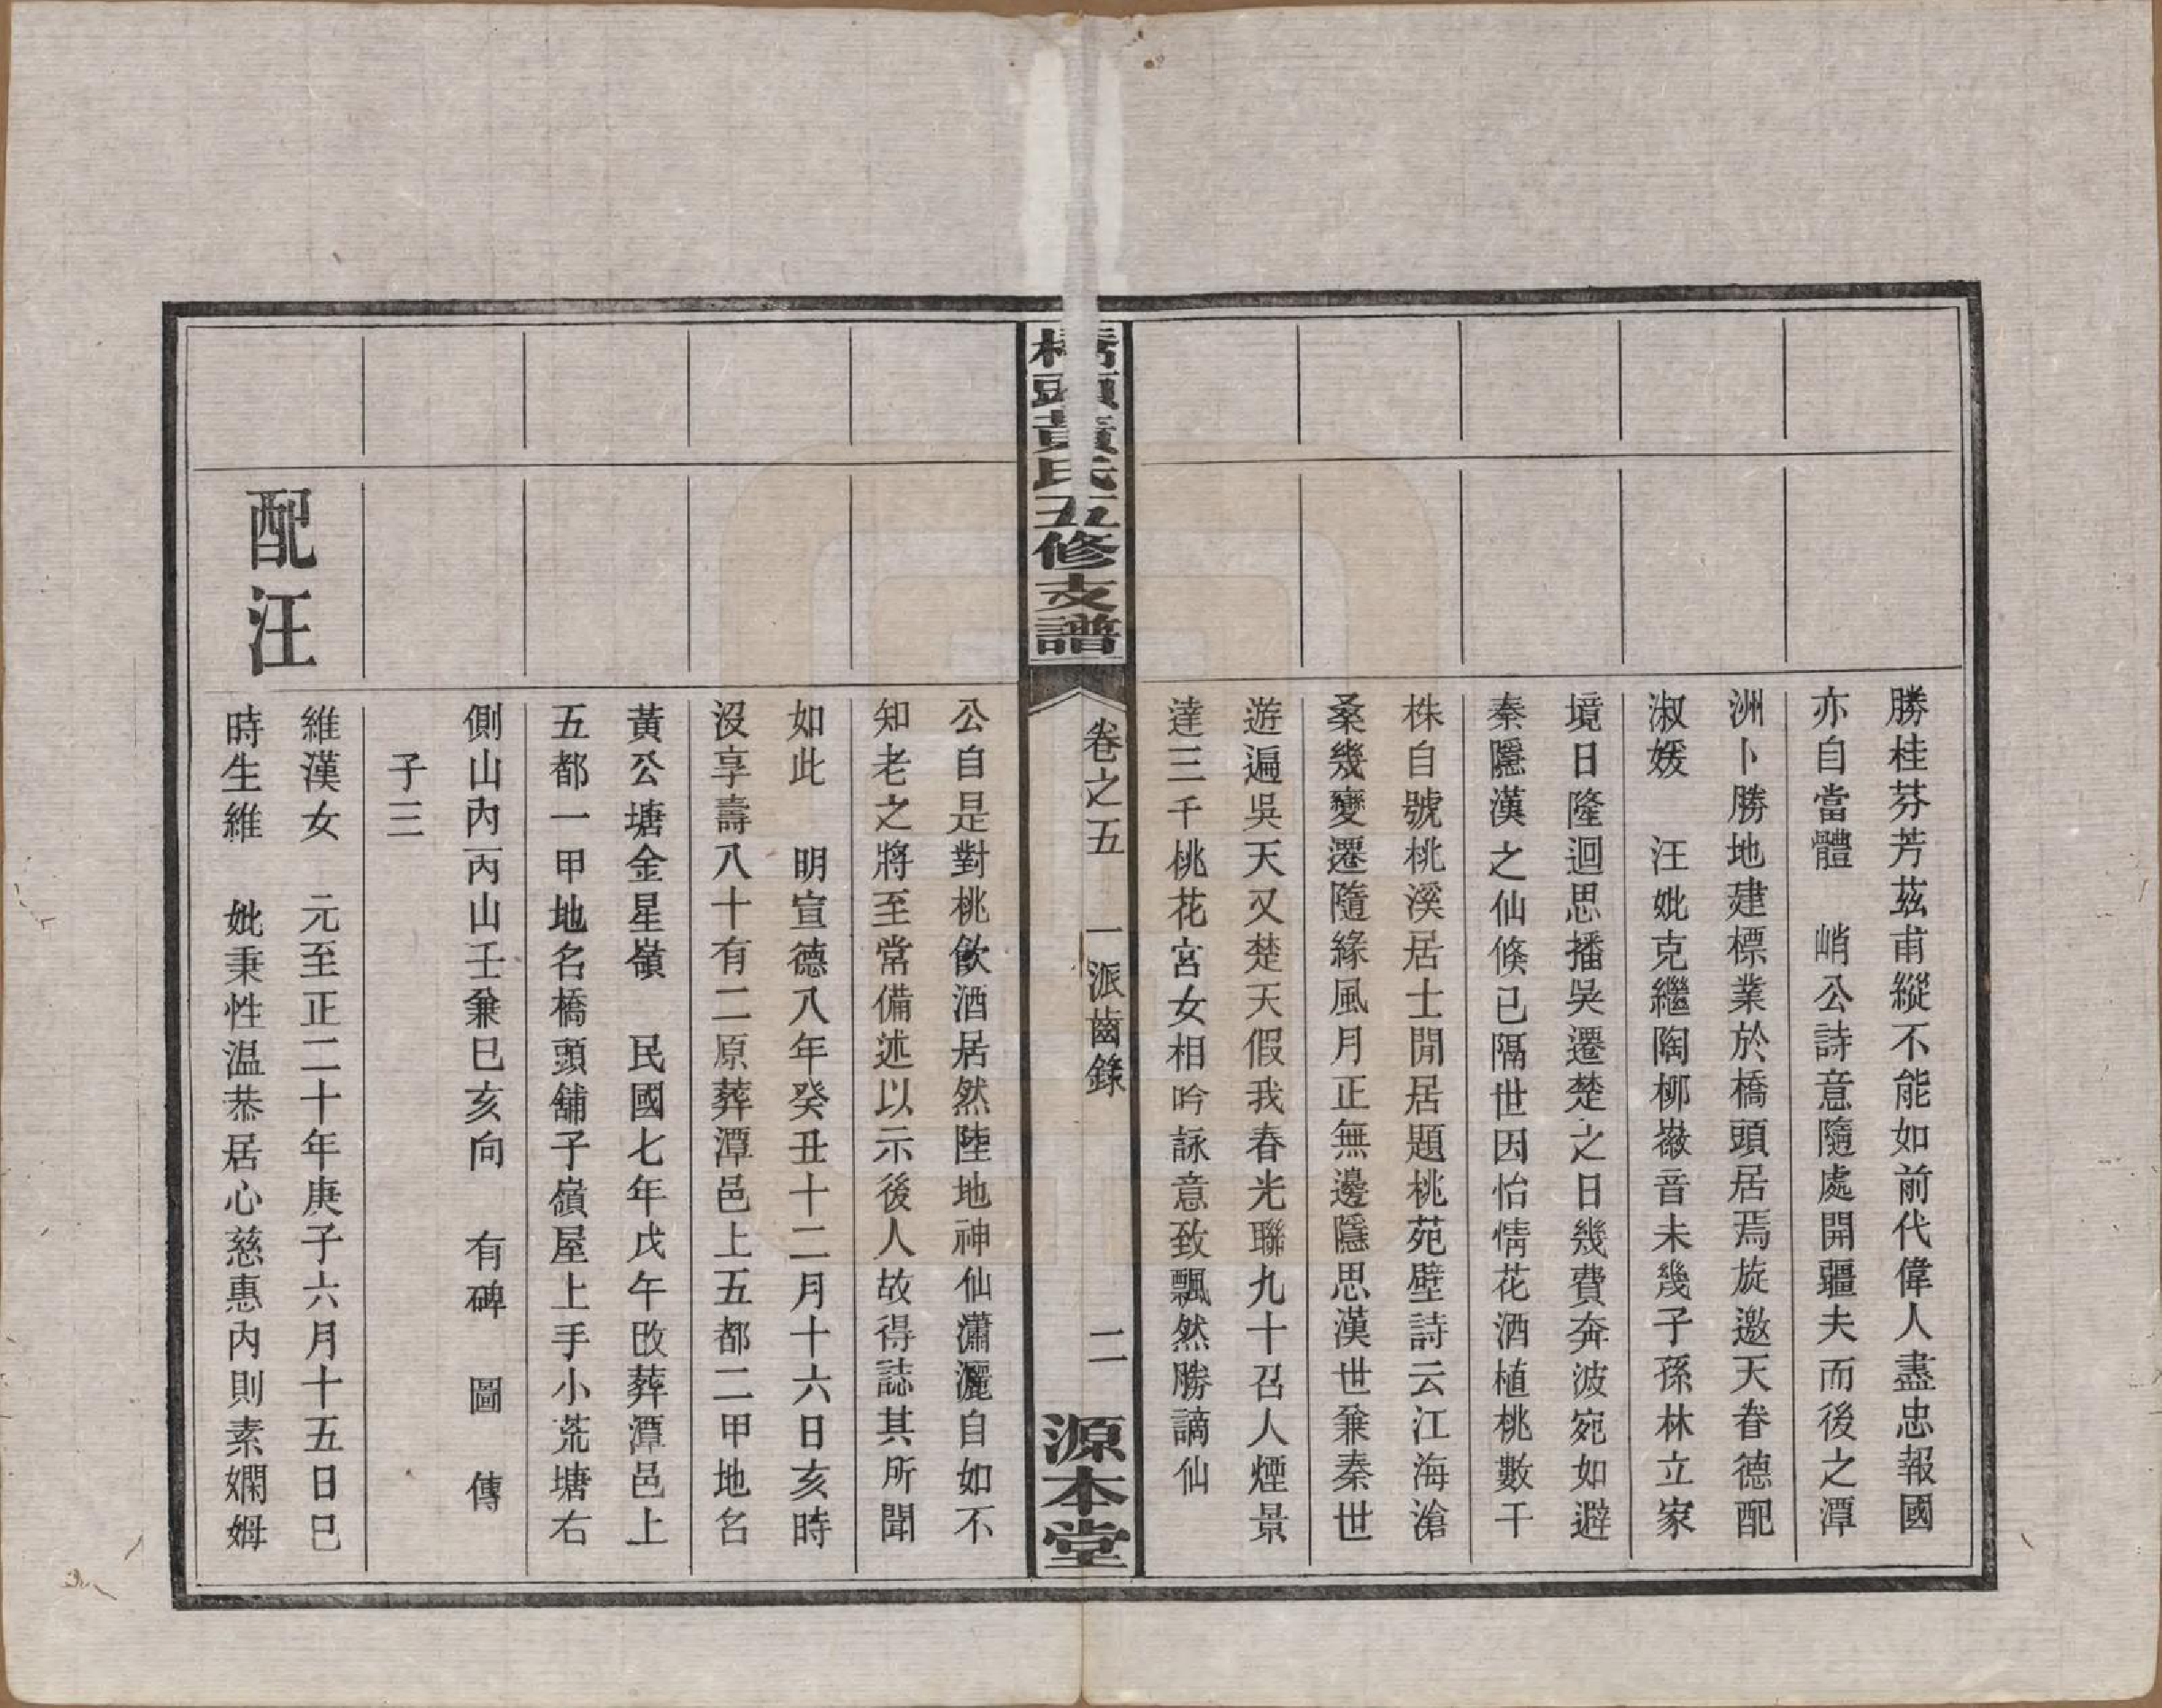 勝桂芬芳茲甫縱不能如前代偉人盡忠報國
亦自當體　峭公詩意隨處開疆夫而後之潭
洲卜勝地建標業於橋頭居焉旋邀天眷德配
淑媛　汪妣克繼陶柳嶶音未幾子孫林立家
境日隆迴思播吳遷楚之日幾費奔波宛如避
秦隱漢之仙倏已隔世因怡情花酒植桃數千
株自號桃溪居士閒居題桃苑壁詩云江海滄
桑幾變遷隨緣風月正無邊隱思漢世兼秦世
遊遍吳天又楚天假我春光聯九十召人煙景
達三千桃花宮女相吟詠意致飄然勝謫仙
橋頭黃氏五修支譜
卷之五　一派齒錄　二
源本堂
公自是對桃飲酒居然陸地神仙瀟灑自如不
知老之將至常備述以示後人故得誌其所聞
如此　明宣德八年癸丑十二月十六日亥時
沒享壽八十有二原葬潭邑上五都二甲地名
黃公塘金星嶺　民國七年戊午改葬潭邑上
五都一甲地名橋頭舖子嶺屋上手小荒塘右
側山內丙山壬兼巳亥向　有碑　圖　傳
子三
配汪
維漢女　元至正二十年庚子六月十五日巳
時生維　妣秉性温恭居心慈惠內則素嫻姆